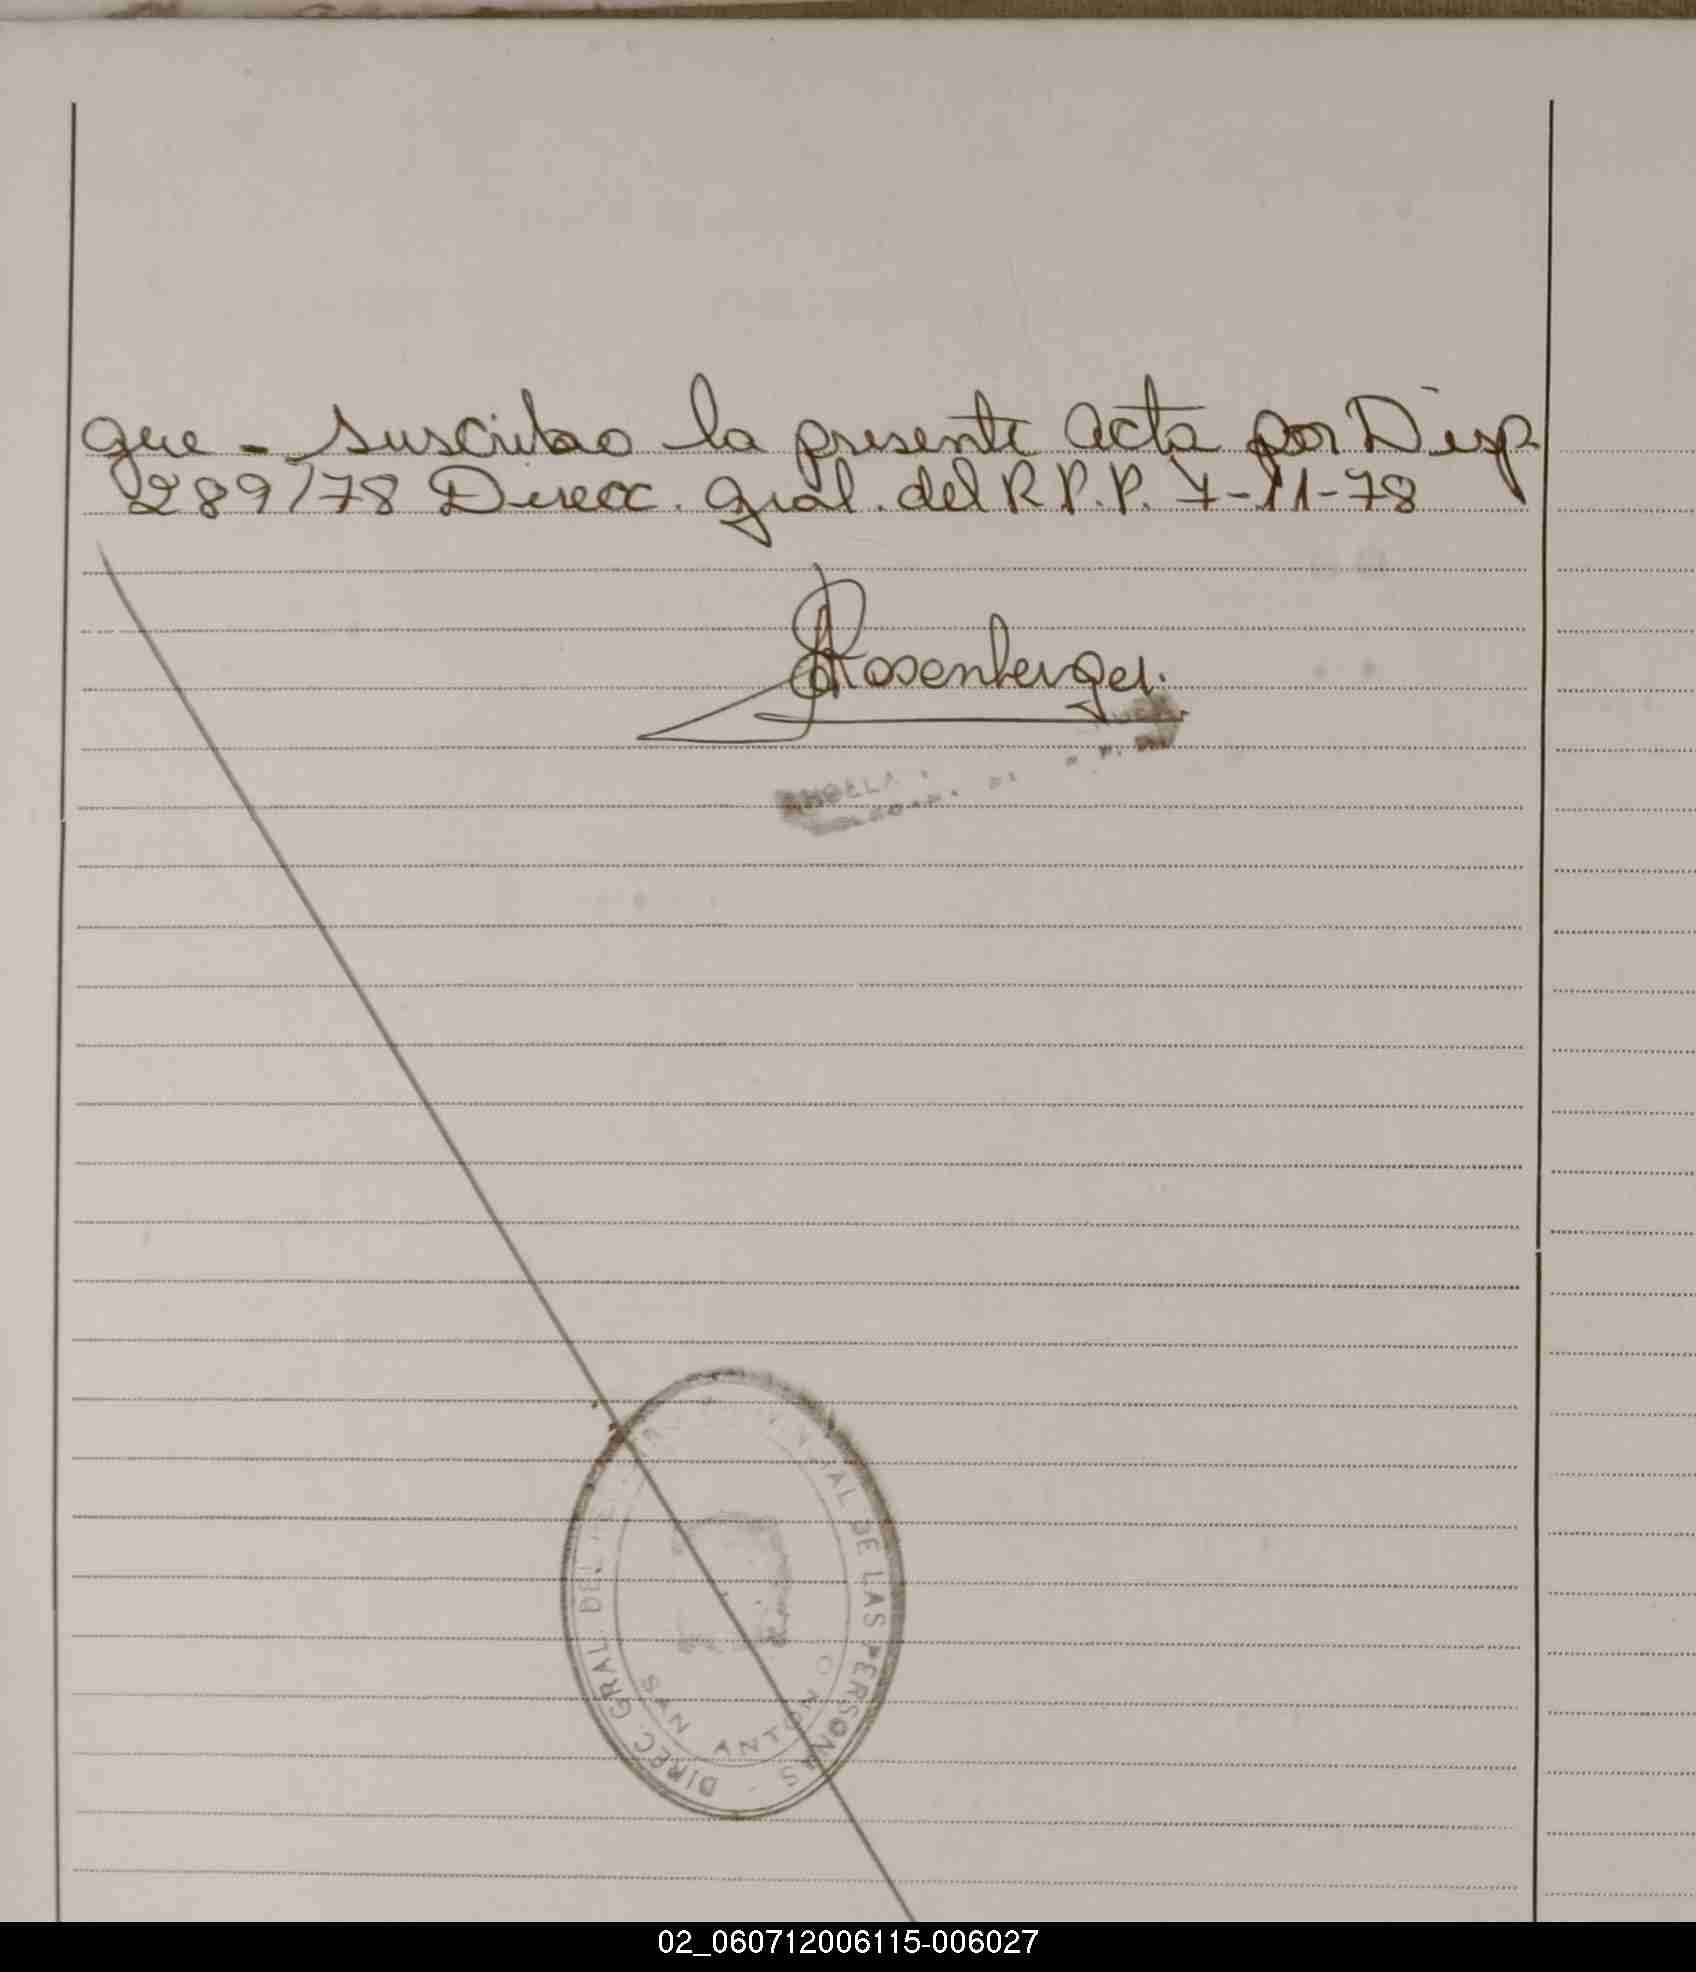 que - suscribo la presente acta por Disp.
289/78 Direcc. Gral. del R.P.P. 7-11-78
Rosenberger.
DIREC. GRAL. DEL DE LAS PERSONAS -
SAN ANTONIO
02_060712006115-006027